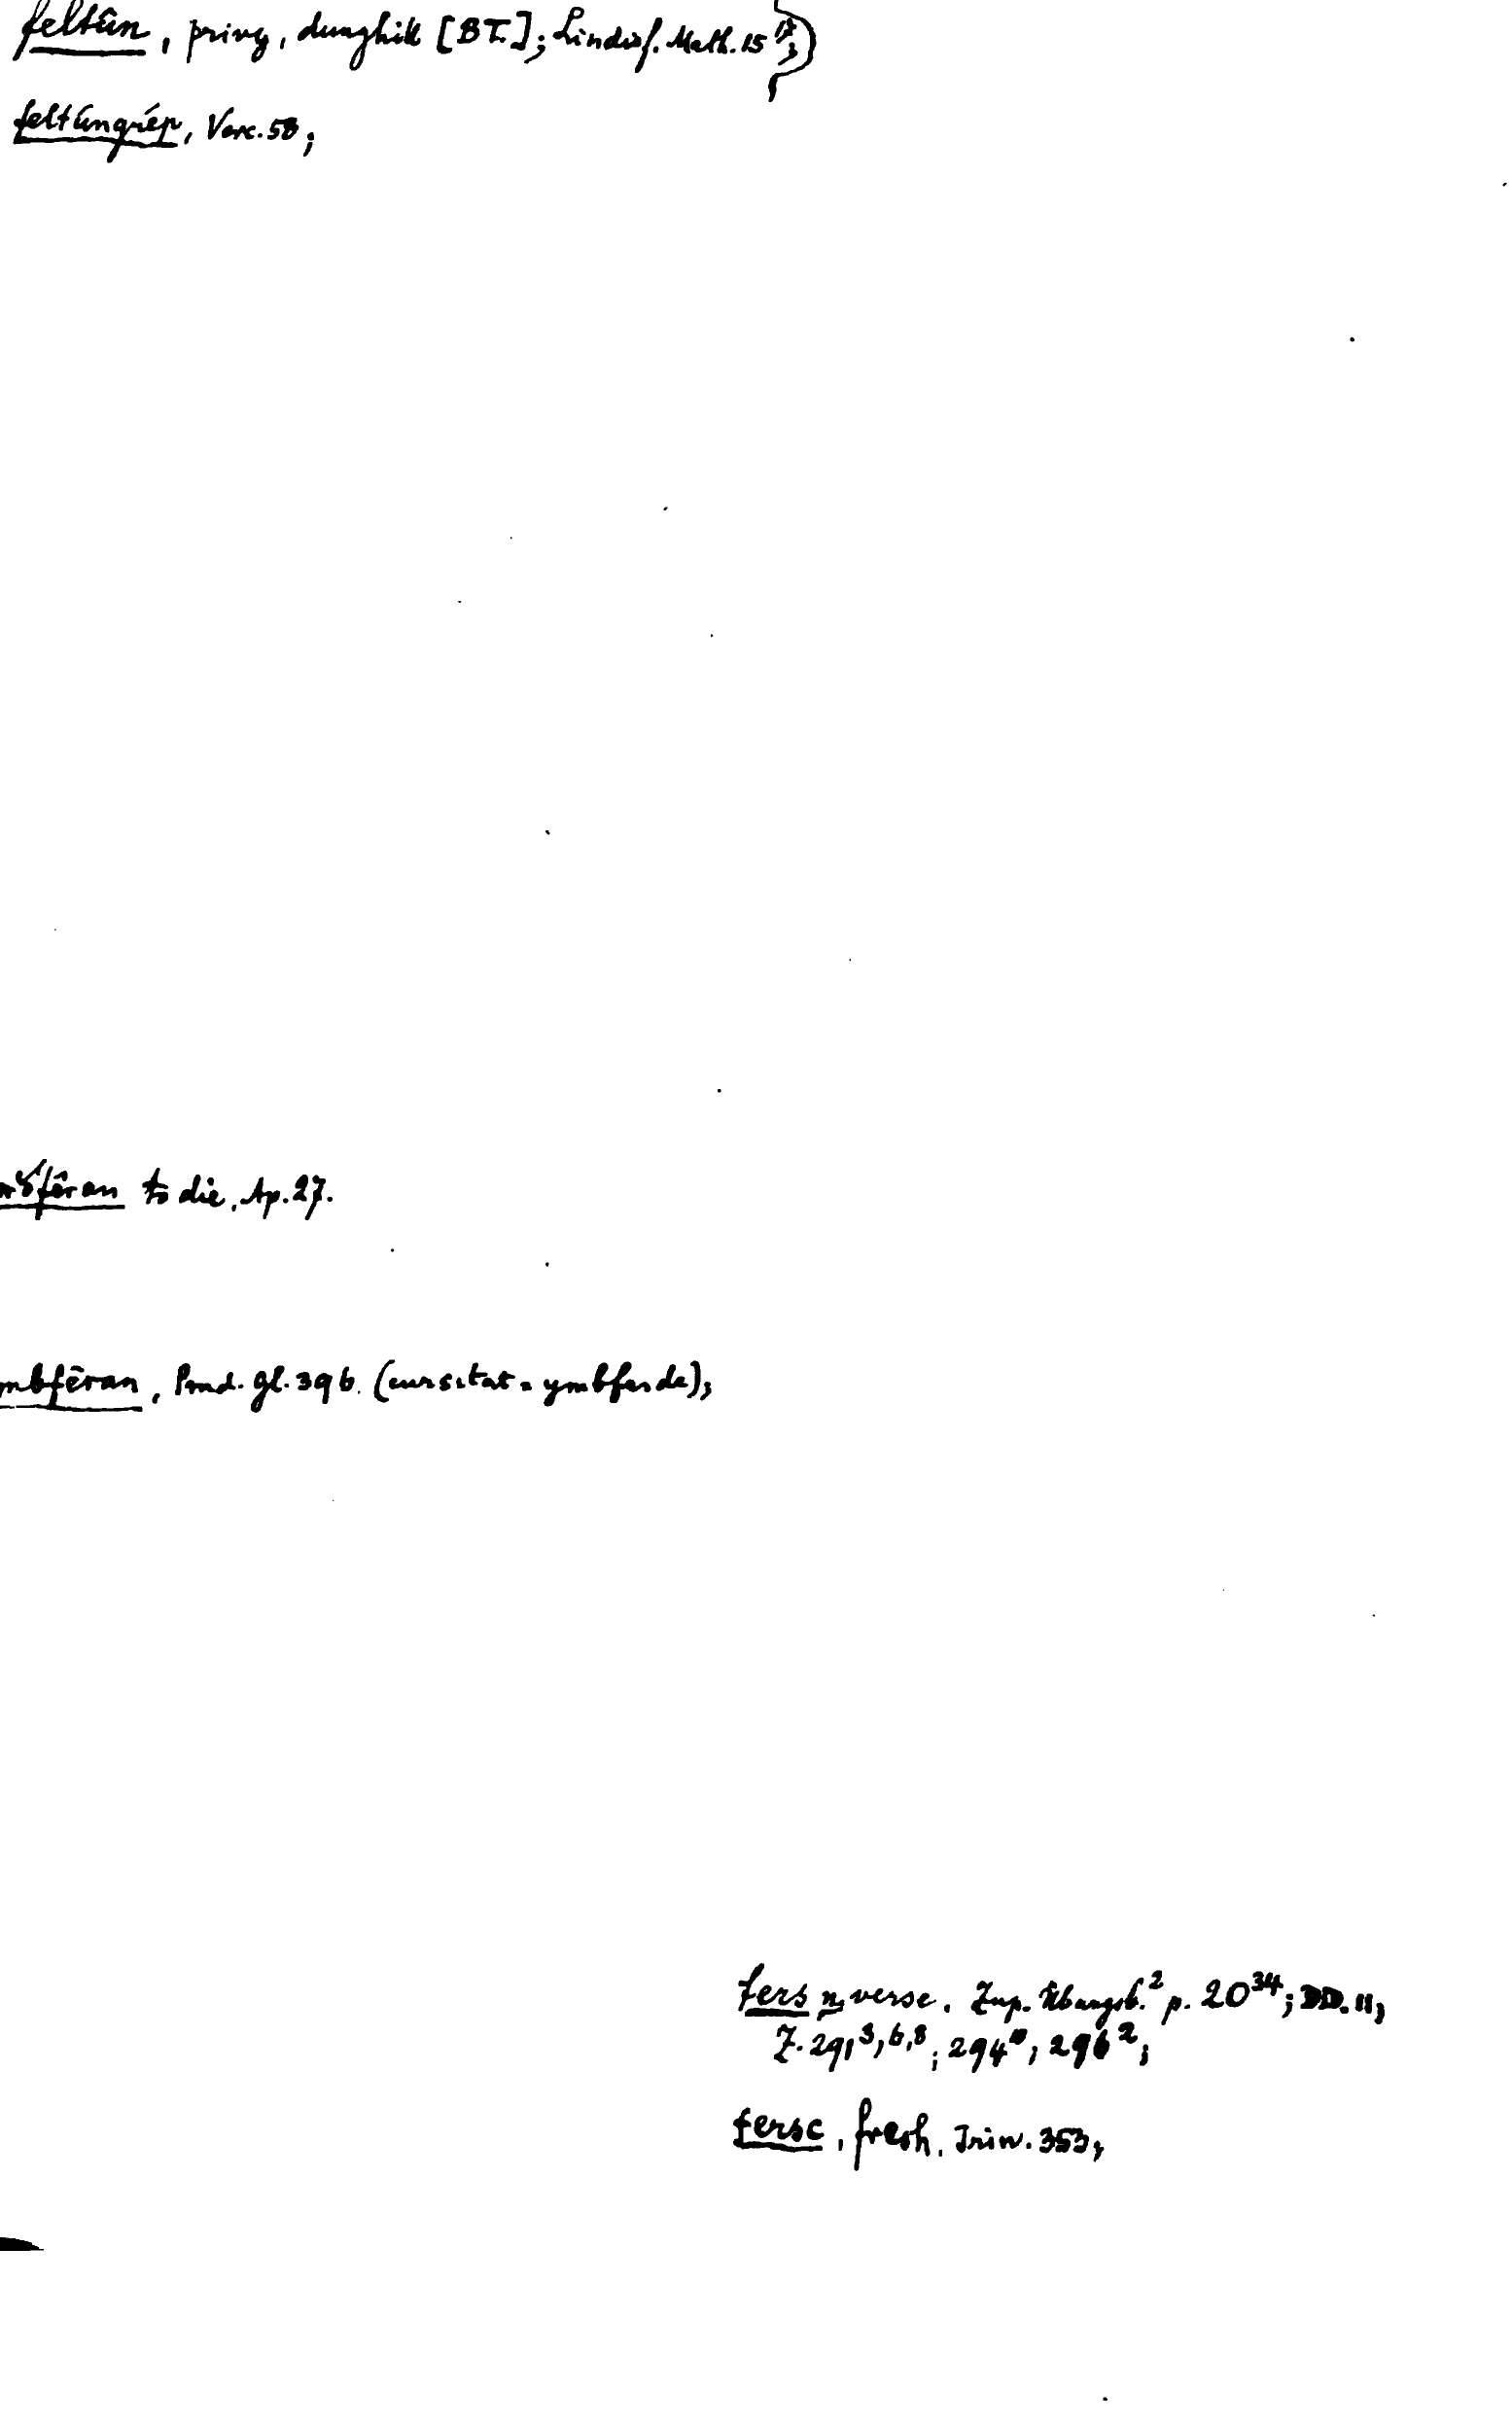 feltûn, privy, dunghill [BT.]; Lindisf. Math. 15 17;)
feltúngrép, Verc. 58;
ðfêran to die, Ap. 27.
mbfēran, Prud. gl. 396. (cursitat = ymbferde);
fers n, verse. Zup. Übungsb.² p. 20³⁴; DD. 11;
Z. 291³,⁶,⁸; 294¹⁰; 296²;
fersc, fresh. Trin. 353;